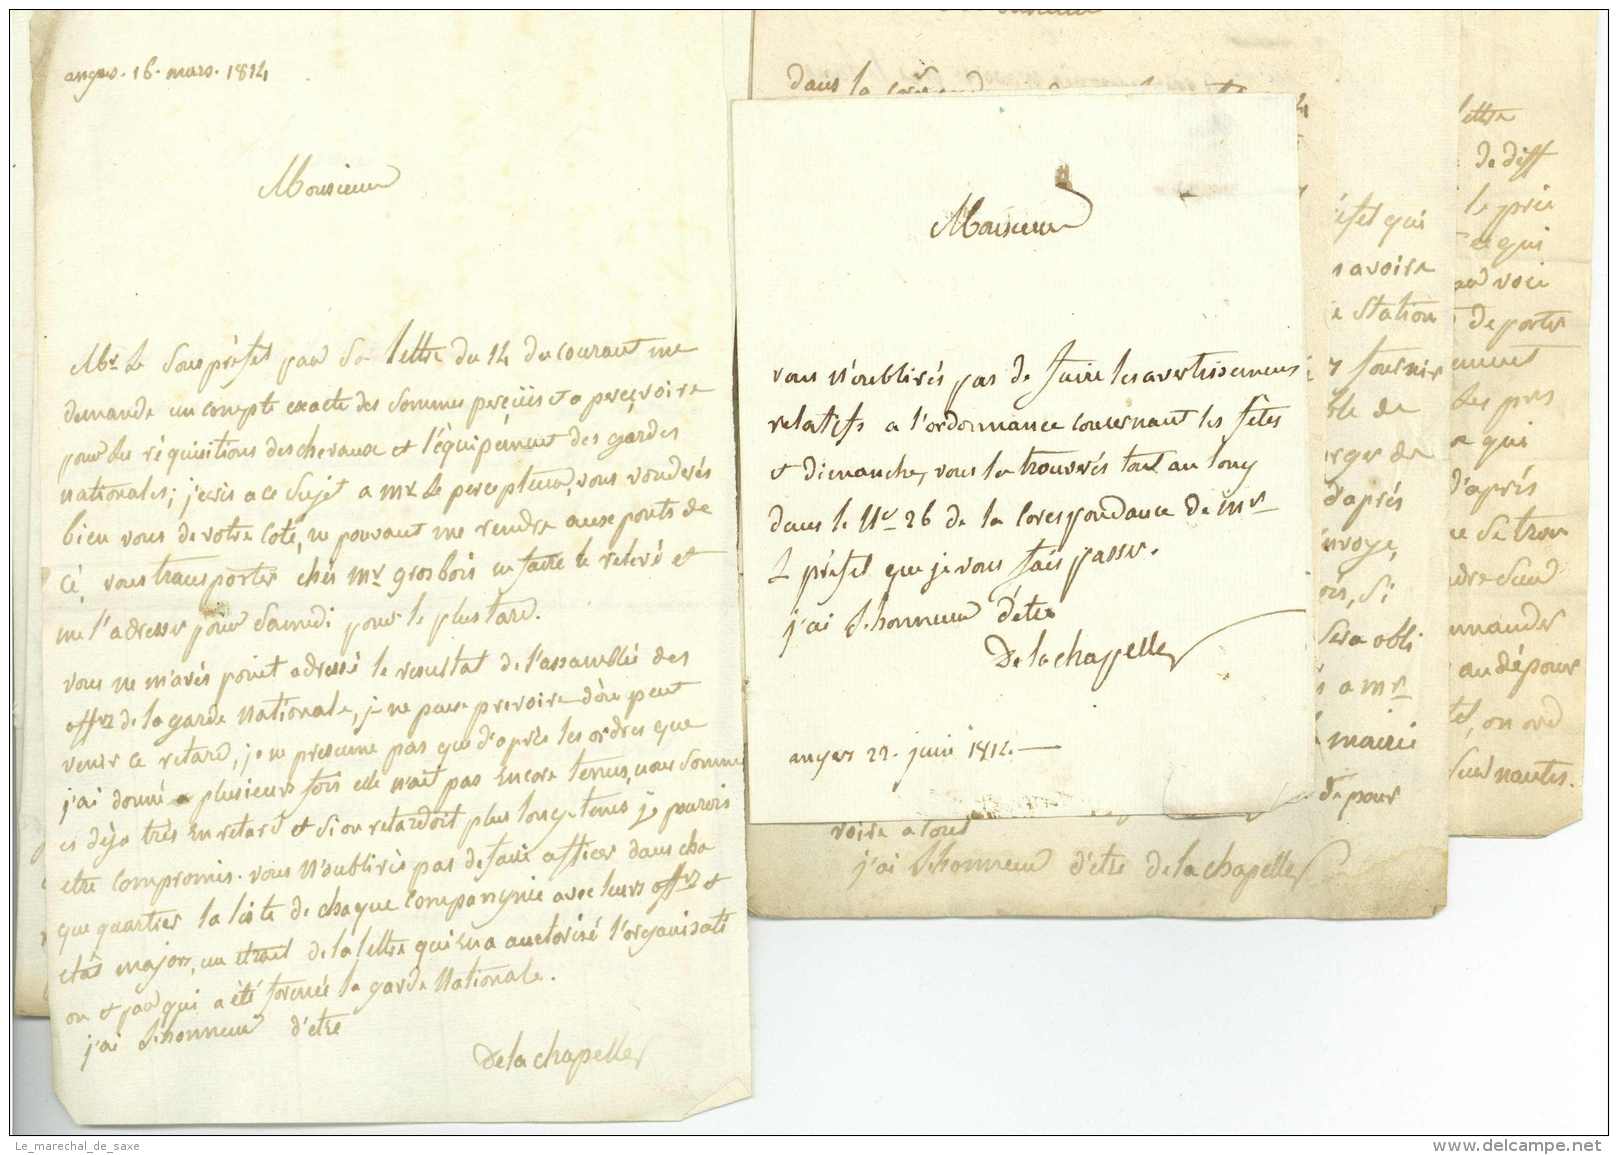 angers. 16. mars. 1814
Monsieur
Mr Le Sous préfet par Sa lettre du 14 du courant me
demande un compte exacte des Sommes perçües et a perçevoire
pour les réquisitions des chevaux et l'équipement des gardes
nationales; j'ecris a ce Sujet a mr Le percepteur, vous voudrés
bien vous de votre coté, ne pouvant me rendre aux ponts de
cé, vous transporter chés mr grosbois en faire le relevé et
me l'adresser pour Samedi pour le plus tard.
vous ne m'avés point adressé le resultat de l'assamblée des
offrs de la garde Nationale, je ne peux prevoire d'ou peut
venir ce retard, je ne presume pas que d'après les ordres que
j'ai donné a plusieurs fois elle n'ait pas Encore tenus, nous Sommes
es déja très En retard et Si on retardoit plus long-tems je pourois
etre compromis. vous N'oublirés pas de faire afficer dans cha
que quartier la liste de chaque compangnie avec leurs offrs et
etat majors, un etrait de la lettre qui En a auctorisé l'organisati
on et par qui a été formée la garde Nationale.
j'ai L'honneur d'etre
De la chapelle
dans la
Monsieur
vous N'oublirés pas de faire les avertissements
relatifs a l'ordonnance concernant les fêtes
et dimanche, vous la trouverés tout au long
dans le No 26 de la corespondance de mr
L préfet que je vous fais passer.
j'ai L'honneur d'etre
De la chapelle
angers 22. juin 1814
voire a cours
j'ai L'honneur d'etre De la chapelle
éfet qui
avoire
Station
fournir
ble de
erger de
d'après
envoye,
Si
Sera obli
a mr
mairie
de pour
lettre
de diff
le prix
qui
voici
de porter
ement
les prs
qui
d'après
Se trou
mander
au dépour
on ord
Sur nantes.
Le_marechal_de_saxe
www.delcampe.net